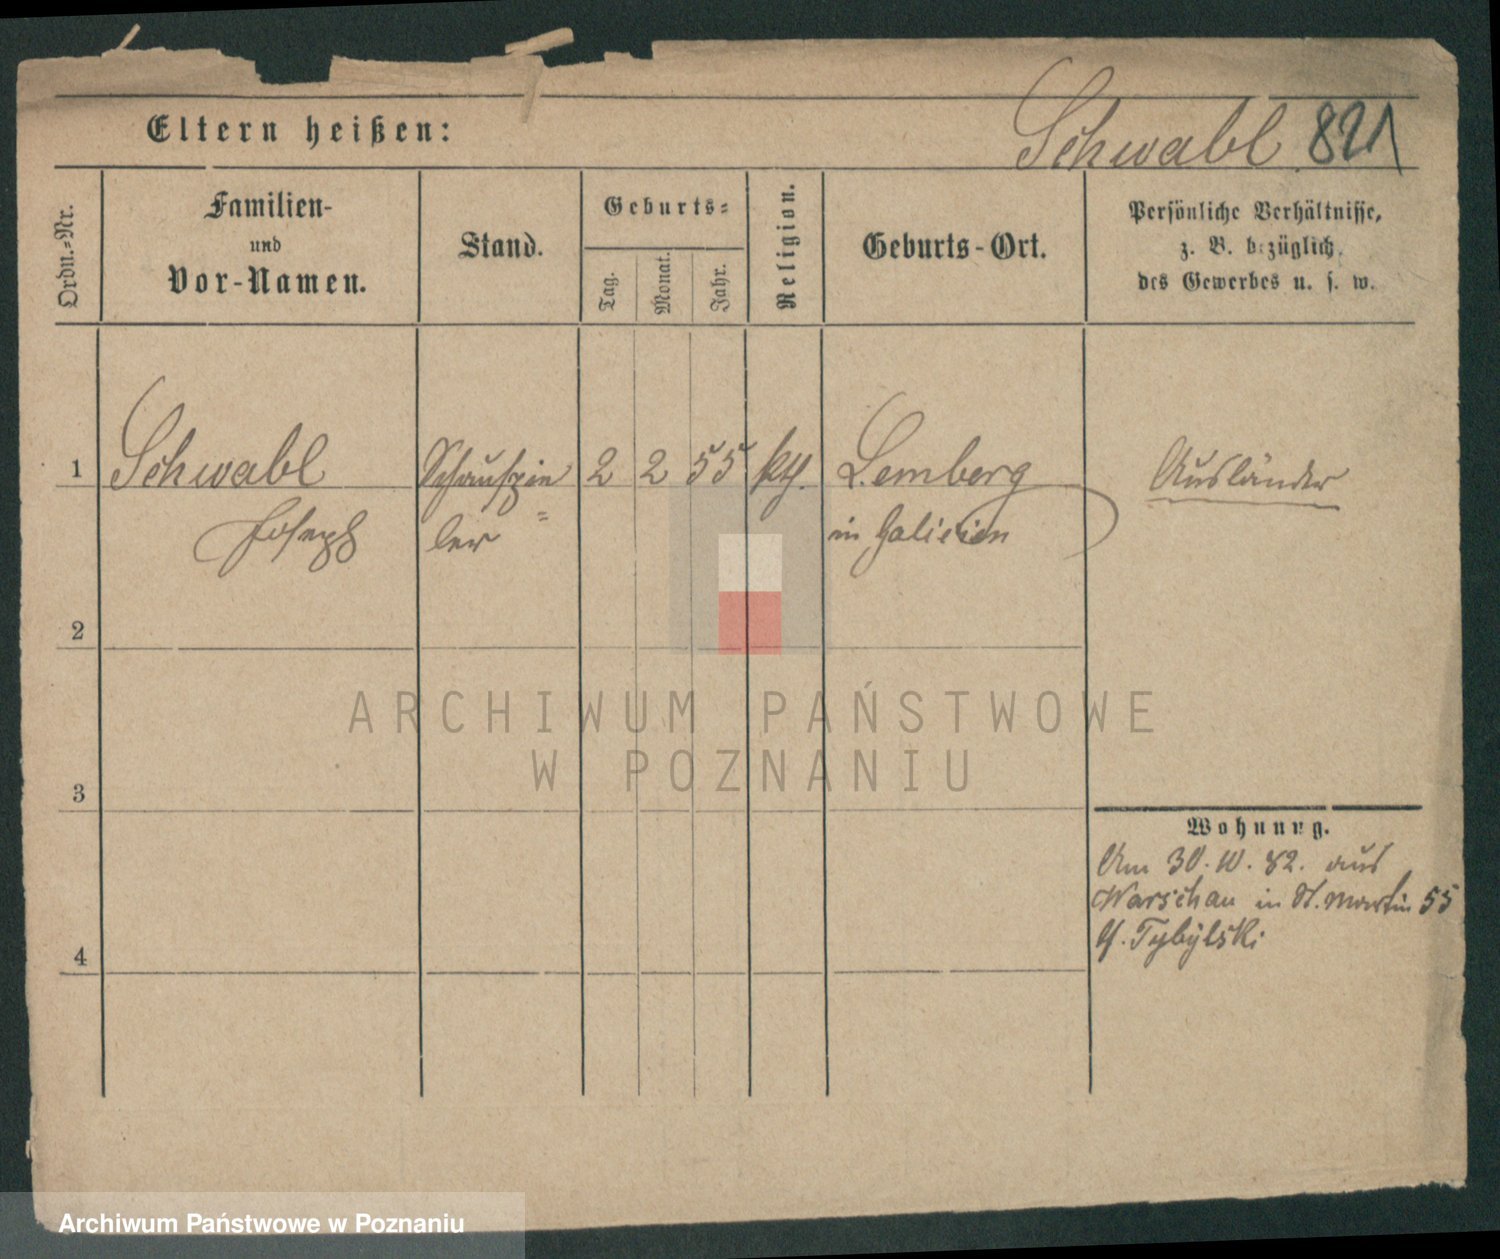 Eltern heißen:
Schwabl 821
Ordn.-Nr.
Familien-
und
Vor-Namen.
Stand.
Geburts-
Tag.
Monat.
Jahr.
Religion.
Geburts-Ort.
Persönliche Verhältnisse,
z. B. bezüglich
des Gewerbes u. s. w.
1 Schwabl Schauspie 2 2 55 kth. Lemberg Ausländer
Joseph ler in Galicien
2
ARCHIWUM PAŃSTWOWE
W POZNANIU
3
Wohnung.
Am 30. 10. 82. aus
Warschau in St. Martin 55
Tybylski
4
Archiwum Państwowe w Poznaniu